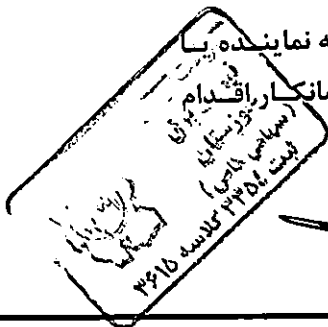 ه نماینده با
مانکار اقدام
خوزستان
(سیاسی خاص)
ثبت ۳۳۵۶ کلاسه ۳۶۱۵